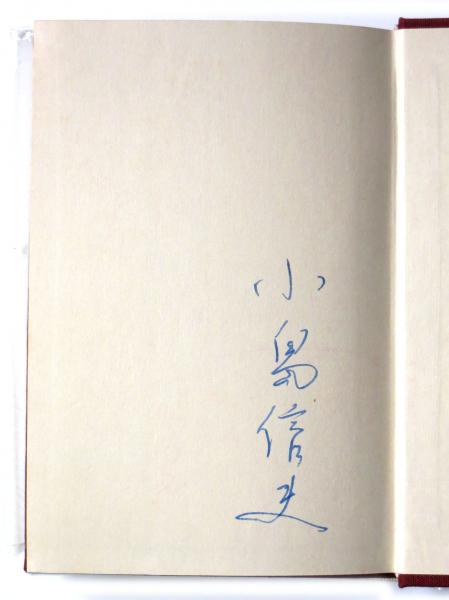 小島信夫